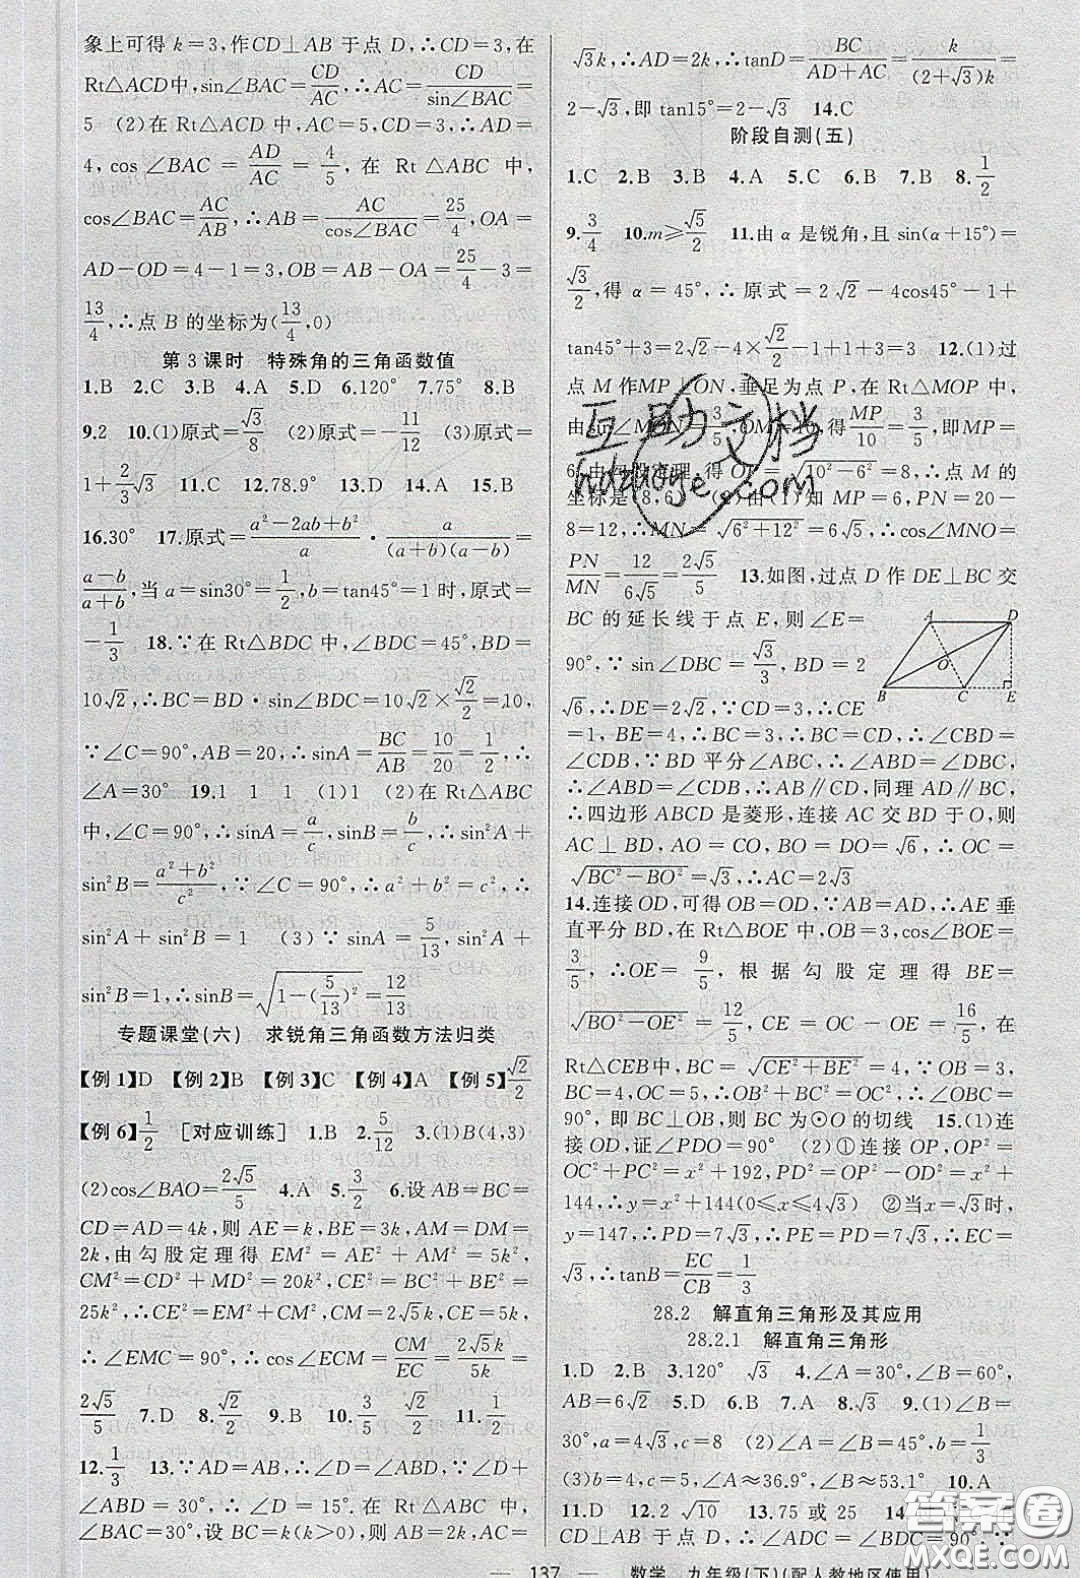 象上可得 k=3,作CD⊥AB 于点 D,∴CD=3,在
Rt△ACD中,sin∠BAC=CD/AC,∴AC=CD/sin∠BAC=
5 (2)在 Rt△ACD 中,AC=5,CD=3,∴AD=
4,cos∠BAC=AD/AC=4/5,在 Rt△ABC 中,
cos∠BAC=AC/AB,∴AB=AC/cos∠BAC=25/4,OA=
AD-OD=4-1=3,OB=AB-OA=25/4-3=
13/4,∴点 B 的坐标为(13/4,0)
第3课时 特殊角的三角函数值
1.B 2.C 3.B 4.A 5.D 6.120° 7.75° 8.B
9.2 10.(1)原式=√3/8 (2)原式=-11/12 (3)原式=
1+2/3√3 11.C 12.78.9° 13.D 14.A 15.B
16.30° 17.原式=(a²-2ab+b²)/a·a/((a+b)(a-b))=
(a-b)/(a+b),当 a=sin30°=1/2,b=tan45°=1时,原式=
-1/3 18.∵在 Rt△BDC 中,∠BDC=45°,BD=
10√2,∴BC=BD·sin∠BDC=10√2×√2/2=10,
∵∠C=90°,AB=20,∴sinA=BC/AB=10/20=1/2,∴
∠A=30° 19.1 1 1 (1)1 (2)在Rt△ABC
中,∠C=90°,∴sinA=a/c,sinB=b/c,∴sin²A+
sin²B=(a²+b²)/c²,∵∠C=90°,∴a²+b²=c²,∴
sin²A+sin²B=1 (3)∵sinA=5/13,sin²A+
sin²B=1,∴sinB=√(1-(5/13)²)=12/13
专题课堂(六) 求锐角三角函数方法归类
【例1】D 【例2】B 【例3】C 【例4】A 【例5】√2/2
【例6】1/2 [对应训练] 1.B 2.5/12 3.(1)B(4,3)
(2)cos∠BAO=2√5/5 4.A 5.3/2 6.设 AB=BC=
CD=AD=4k,则 AE=k,BE=3k,AM=DM=
2k,由勾股定理得 EM²=AE²+AM²=5k²,
CM²=CD²+MD²=20k²,CE²=BC²+BE²=
25k²,∴CE²=EM²+CM²,CM=2√5k,CE=5k,
∴∠EMC=90°,∴cos∠ECM=CM/EC=2√5k/5k=
2√5/5 7.D 8.√2/2 9.B 10.3/5 11.1/2
12.1/3 13.∵AD=AB,∴∠D=∠ABD,∵∠D+
∠ABD=30°,∴∠D=15°.在 Rt△ABC 中,
∠BAC=30°,设 BC=k(k>0),则 AB=2k,AC=
√3k,∴AD=2k,∴tanD=BC/(AD+AC)=k/((2+√3)k)=
2-√3,即 tan15°=2-√3 14.C
阶段自测(五)
1.C 2.B 3.B 4.A 5.C 6.B 7.B 8.1/2
9.3/4 10.m≥√5/2 11.由 α 是锐角,且 sin(α+15°)=
√3/2,得 α=45°,∴原式=2√2-4cos45°-1+
tan45°+3=2√2-4×√2/2-1+1+3=3 12.(1)过
点 M 作MP⊥ON,垂足为点 P,在 Rt△MOP 中,
由sin∠MON=3/5,OM=10,得MP/10=3/5,即MP=
6,由勾股定理,得 OP=√(10²-6²)=8,∴点 M 的
坐标是(8,6) (2)由(1)知 MP=6,PN=20-
8=12,∴MN=√(6²+12²)=6√5,∴cos∠MNO=
PN/MN=12/6√5=2√5/5 13.如图,过点 D 作 DE⊥BC 交
BC 的延长线于点 E,则∠E=
90°,∵sin∠DBC=√3/3,BD=2
√6,∴DE=2√2,∵CD=3,∴CE
=1,BE=4,∴BC=3,∴BC=CD,∴∠CBD=
∠CDB,∵BD 平分∠ABC,∴∠ABD=∠DBC,
∴∠ABD=∠CDB,∴AB∥CD,同理 AD∥BC,
∴四边形 ABCD 是菱形,连接 AC 交 BD 于 O,则
AC⊥BD,AO=CO,BO=DO=√6,∴OC=
√(BC²-BO²)=√3,∴AC=2√3
14.连接 OD,可得 OB=OD,∵AB=AD,∴AE 垂
直平分 BD,在 Rt△BOE 中,OB=3,cos∠BOE=
3/5,∴OE=9/5,根据勾股定理得 BE=
√(BO²-OE²)=12/5,CE=OC-OE=16/5,在
Rt△CEB中,BC=√(CE²+BE²)=4,∵OB=3,
BC=4,OC=5,∴OB²+BC²=OC²,∴∠OBC=
90°,即 BC⊥OB,则 BC 为⊙O 的切线 15.(1)连
接 OD,证∠PDO=90° (2)①连接 OP,OP²=
OC²+PC²=x²+192,PD²=OP²-OD²=x²+
144,∴y=x²+144(0≤x≤4√3) ②当x=√3时,
y=147,∴PD=7√3,∴PE=PD=7√3,∴EC=
√3,∴tanB=EC/CB=1/3
28.2 解直角三角形及其应用
28.2.1 解直角三角形
1.D 2.B 3.120° √3 4.∠A=30°,∠B=60°,
AB=6√2 5.D 6.B 7.A 8.A 9.(1)∠B=
30°,a=4√3,c=8 (2)∠A=∠B=45°,b=3
(3)b=4,c=5,∠A≈36.9°,∠B≈53.1° 10.A
11.D 12.2√10 13.75 或 25
CD⊥AB 于点 D,∴∠ADC=∠BDC=90°.∵
A D
O
B C E
互助文档
hdzuoye.com
答案圈
MXQE.COM
— 137 — 数学 九年级(下)(配人教地区使用)